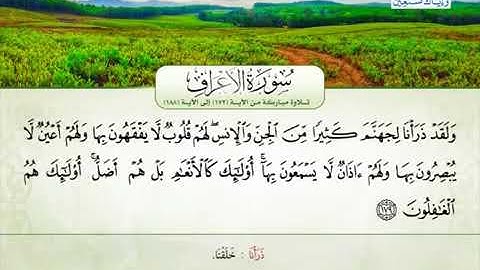 وإياك نستعين
سُورَةُ الأَعْرَافِ
تلاوة مباركة من الآية (١٧٢) إلى الآية (١٨٨)
وَلَقَدْ ذَرَأْنَا لِجَهَنَّمَ كَثِيرًا مِّنَ الْجِنِّ وَالْإِنسِ ۖ لَهُمْ قُلُوبٌ لَّا يَفْقَهُونَ بِهَا وَلَهُمْ أَعْيُنٌ لَّا
يُبْصِرُونَ بِهَا وَلَهُمْ ءَاذَانٌ لَّا يَسْمَعُونَ بِهَا ۚ أُولَٰٓئِكَ كَالْأَنْعَامِ بَلْ هُمْ أَضَلُّ ۚ أُولَٰٓئِكَ هُمُ
الْغَافِلُونَ ﴿١٧٩﴾
ذَرَأْنَا : خَلَقْنَا.